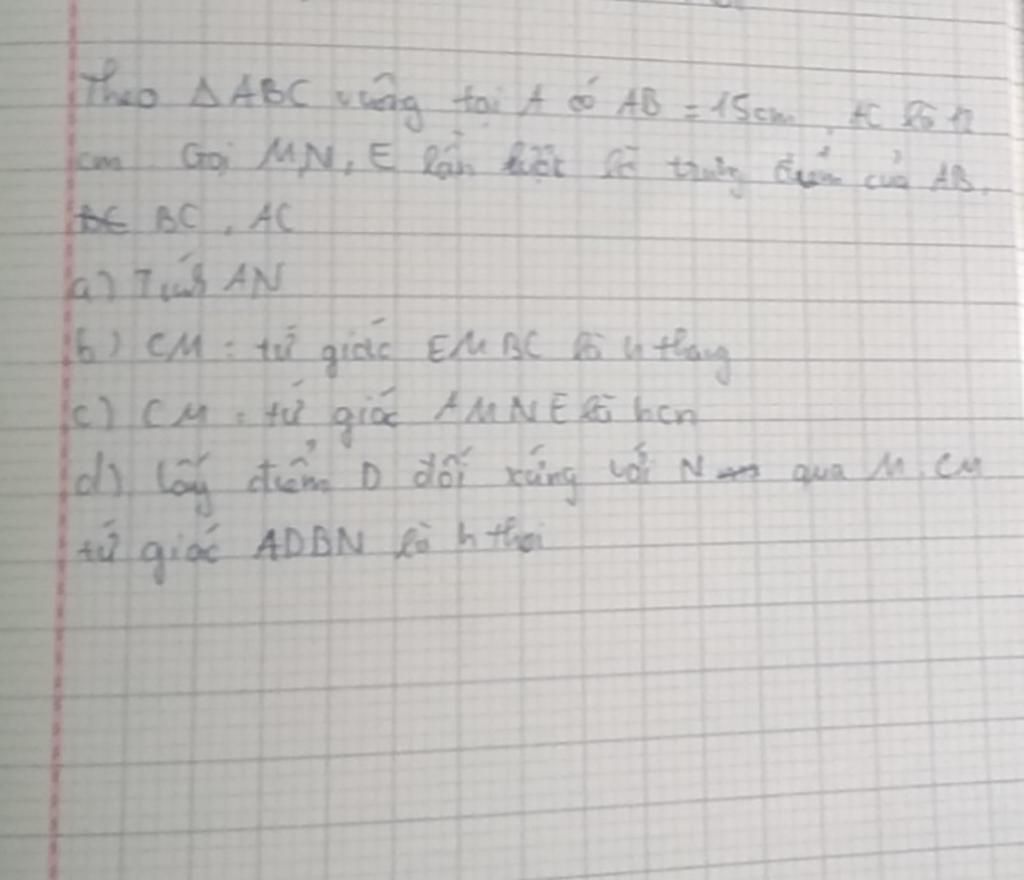 Theo Δ ABC vuông tại A có AB = 15cm, AC là 12
cm Gọi M,N, E lần lượt là trung điểm của AB,
BC, AC
a) Tính AN
b) CM: tứ giác EMBC là h thang
c) CM: tứ giác AMNE là hcn
d) lấy điểm D đối xứng với N qua M. CM
tứ giác ADBN là h thoi